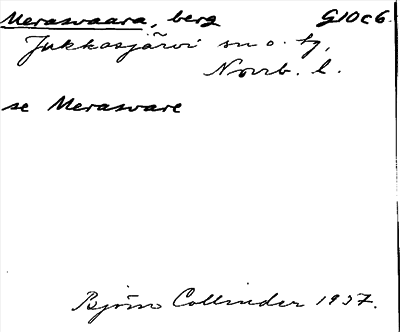 Merasvaara, berg G10c6.
Jukkasjärvi sn o. tg,
Norrb. l.
se Merasvare
Björn Collinder 1937.